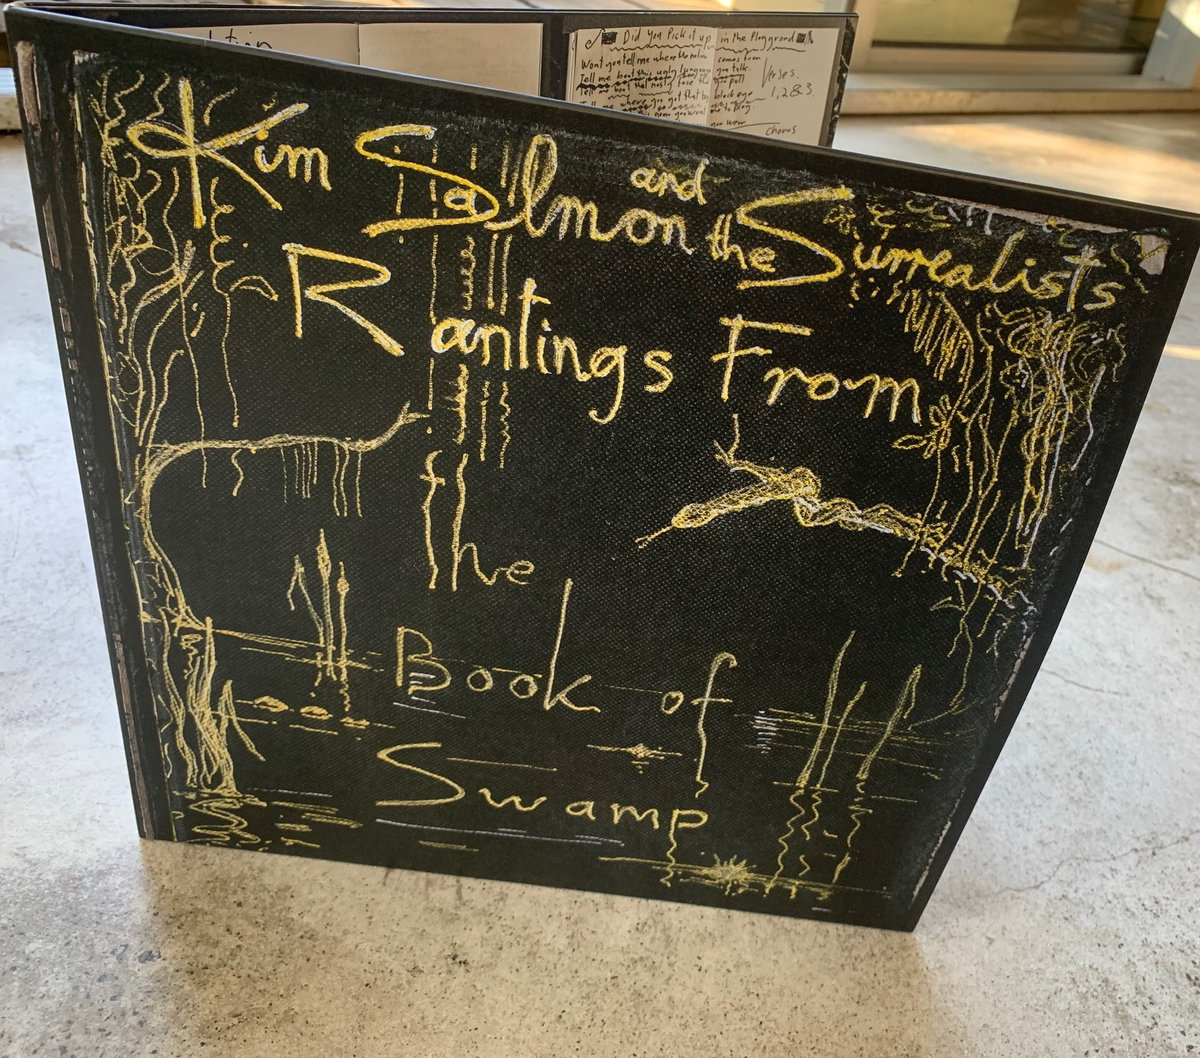 Did You Pick it up in the Playground
Wont you tell me where the comes from
Tell me bout this ugly you talk.
Verses.
1, 2 & 3
chorus
Kim Salmon and the Surrealists
Rantings From
the
Book of
Swamp